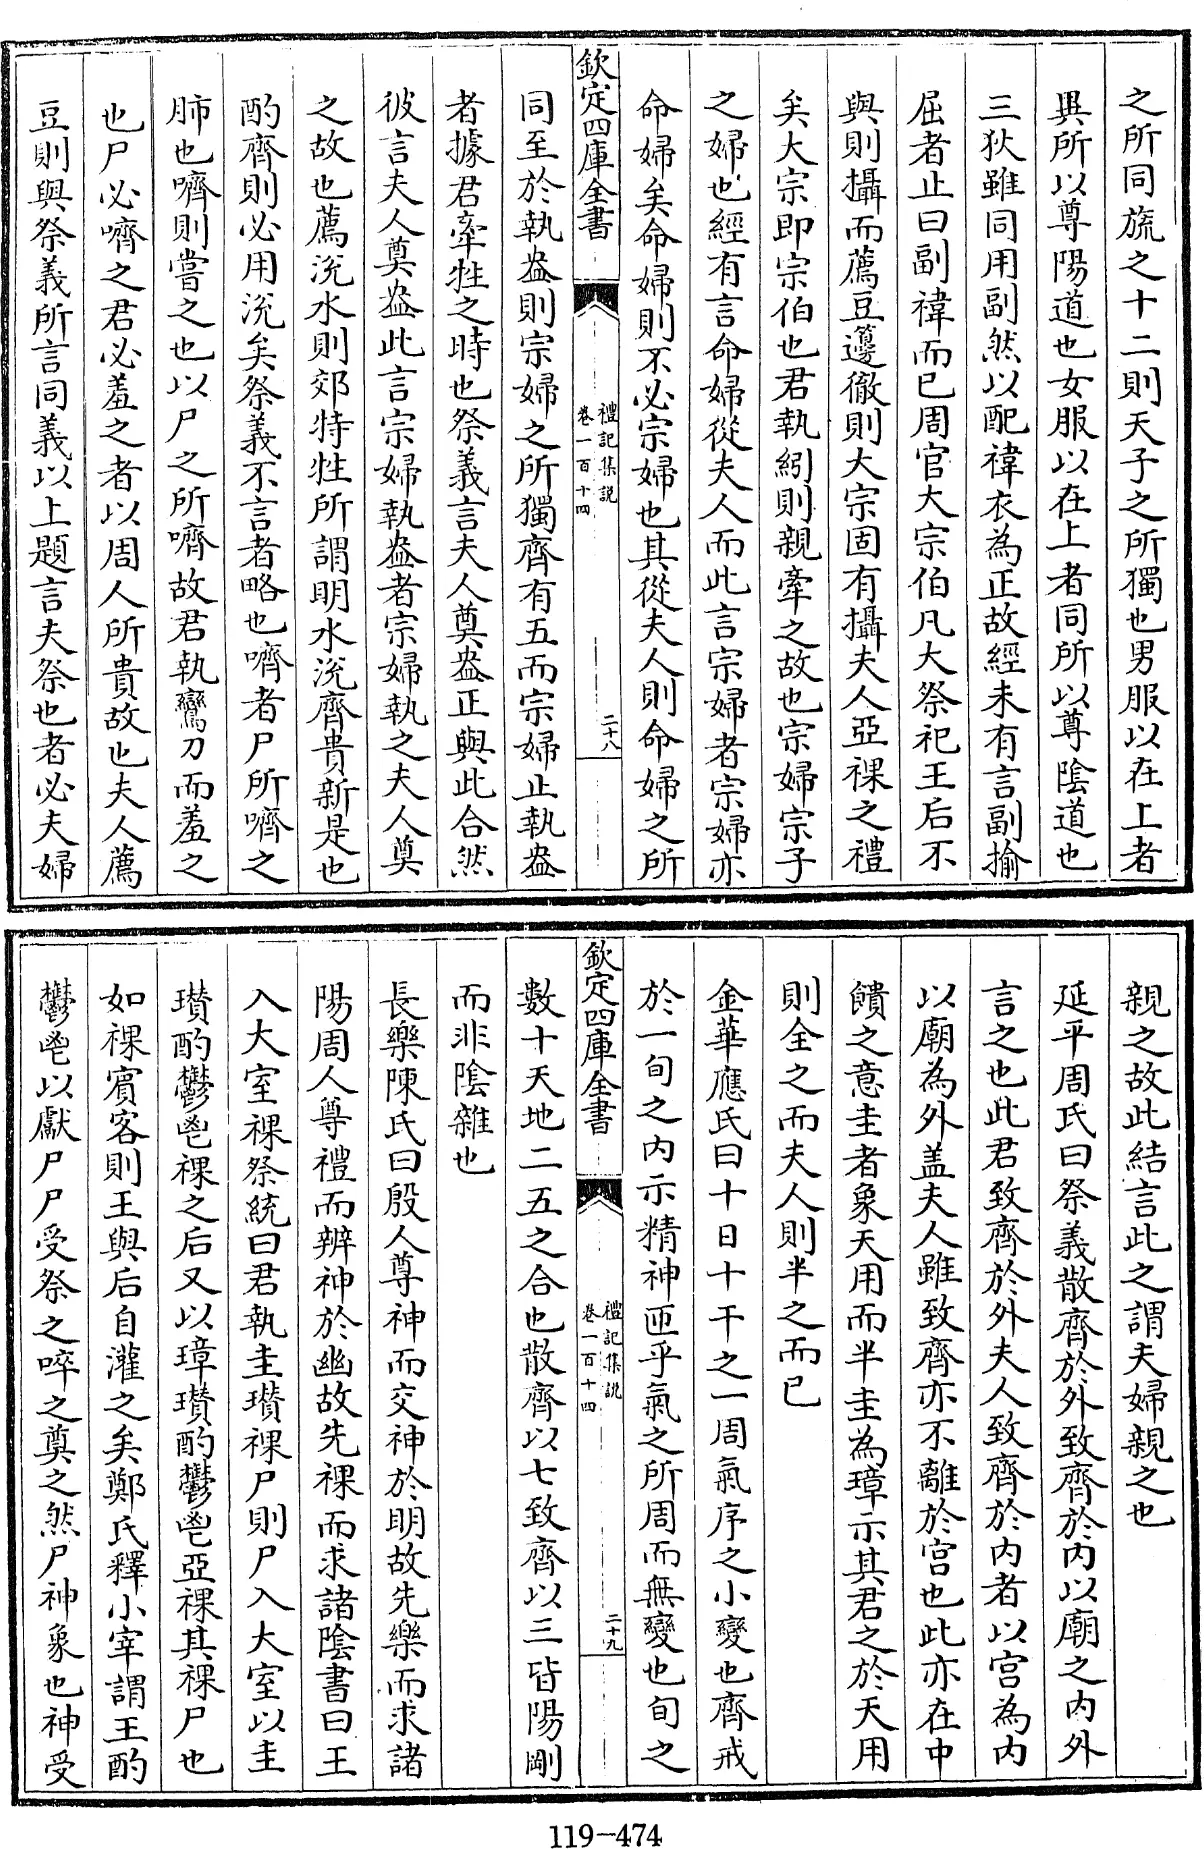 之所同旒之十二則天子之所獨也男服以在上者
異所以尊陽道也女服以在上者同所以尊陰道也
三狄雖同用副然以配褘衣為正故經未有言副揄
屈者止曰副褘而已周官大宗伯凡大祭祀王后不
與則攝而薦豆籩徹則大宗固有攝夫人亞祼之禮
矣大宗即宗伯也君執紖則親牽之故也宗婦宗子
之婦也經有言命婦從夫人而此言宗婦者宗婦亦
命婦矣命婦則不必宗婦也其從夫人則命婦之所
欽定四庫全書
禮記集說
卷一百十四
二十八
同至於執盎則宗婦之所獨齊有五而宗婦止執盎
者據君牽牲之時也祭義言夫人奠盎正與此合然
彼言夫人奠盎此言宗婦執盎者宗婦執之夫人奠
之故也薦涚水則郊特牲所謂明水涚齊貴新是也
酌齊則必用涚矣祭義不言者略也嚌者尸所嚌之
肺也嚌則嘗之也以尸之所嚌故君執鸞刀而羞之
也尸必嚌之君必羞之者以周人所貴故也夫人薦
豆則與祭義所言同義以上題言夫祭也者必夫婦
親之故此結言此之謂夫婦親之也
延平周氏曰祭義散齊於外致齊於内以廟之内外
言之也此君致齊於外夫人致齊於内者以宫為内
以廟為外盖夫人雖致齊亦不離於宫也此亦在中
饋之意圭者象天用而半圭為璋示其君之於天用
則全之而夫人則半之而已
金華應氏曰十日十干之一周氣序之小變也齊戒
於一旬之内示精神匝乎氣之所周而無變也旬之
欽定四庫全書
禮記集說
卷一百十四
二十九
數十天地二五之合也散齊以七致齊以三皆陽剛
而非陰雜也
長樂陳氏曰殷人尊神而交神於明故先樂而求諸
陽周人尊禮而辨神於幽故先祼而求諸陰書曰王
入大室祼祭統曰君執圭瓚祼尸則尸入大室以圭
瓚酌鬱鬯祼之后又以璋瓚酌鬱鬯亞祼其祼尸也
如祼賓客則王與后自灌之矣鄭氏釋小宰謂王酌
鬱鬯以獻尸尸受祭之啐之奠之然尸神象也神受
119-474